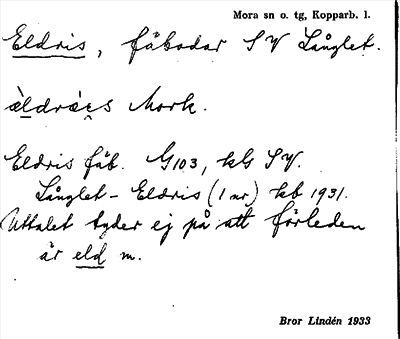 Mora sn o. tg, Kopparb. l.
Eldris, fäbodar SV Långlet.
Mork.
Eldris fäb. G103, kls SV.
Långlet - Eldris (1 nr) kb 1931.
Uttalet tyder ej på att förleden
är eld m.
Bror Lindén 1933